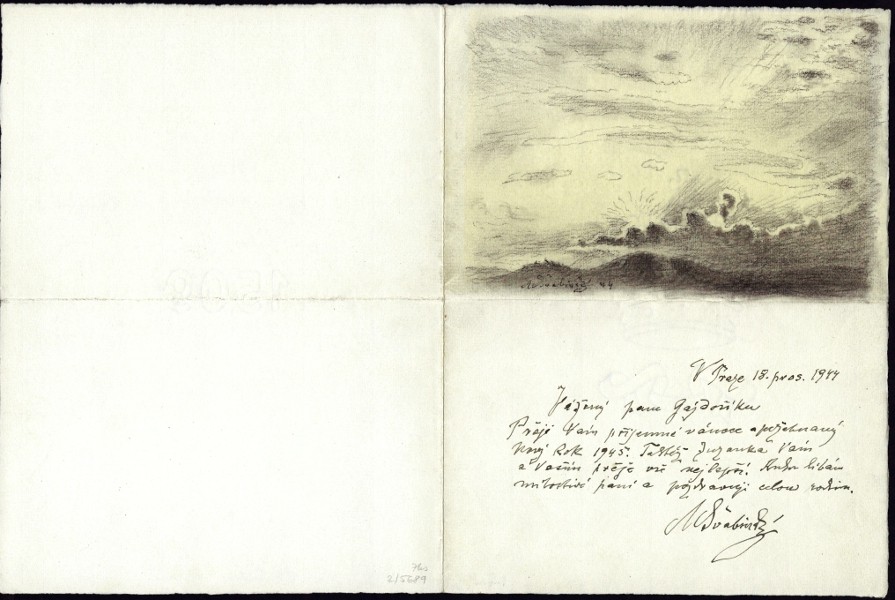 MŠvabinský 44
V Praze 18. pros. 1944
Vážený pane Gajdošíku
Přeji Vám příjemné vánoce a požehnaný
Nový Rok 1945. Taktéž Zuzanka Vám
a Vašim přeje vše nejlepší. Ruku líbám
milostivé paní a pozdravuji celou rodinu.
MŠvabinský
2/5689